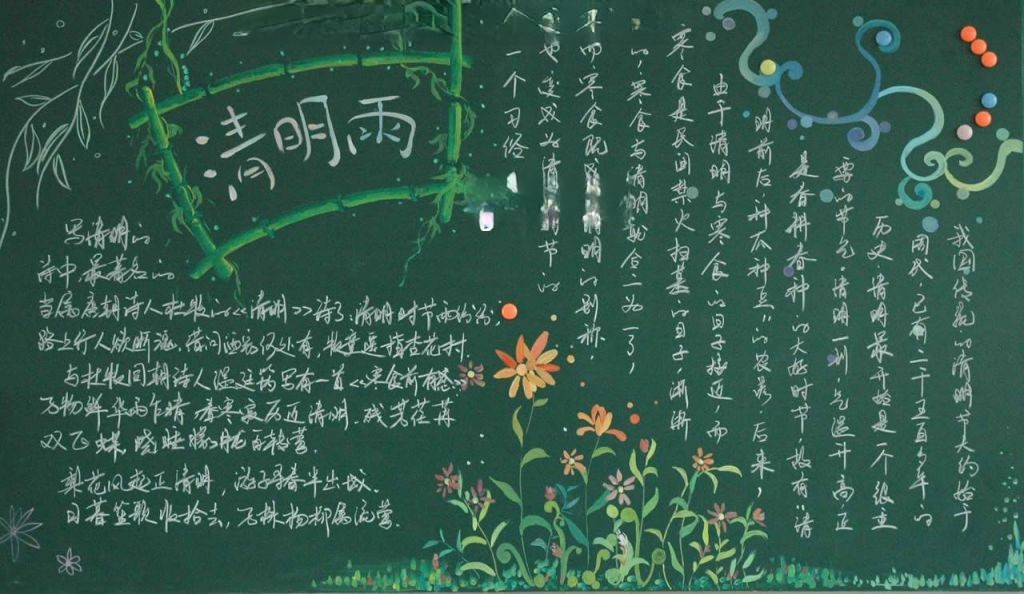 清明雨
写清明的
诗中,最著名的
当属唐朝诗人杜牧的<<清明>>诗了:清明时节雨纷纷,
路上行人欲断魂。借问酒家何处有,牧童遥指杏花村
与杜牧同朝诗人温庭筠写有一首<<寒食前有怀>>
万物鲜华雨乍晴,春寒寂历近清明.残芳荏苒
双飞蝶,晓睡朦胧百啭莺.
梨花风起正清明,游子寻春半出城.
日暮笙歌收拾去,万株杨柳属流莺.
我国传统的清明节大约始于
周代,已有二千五百多年的
历史.清明最开始是一个很重
要的节气.清明一到,气温升高,正
是春耕春种的大好时节,故有"清
明前后,种瓜种豆"的农谚.后来,
由于清明与寒食的日子接近,而
寒食是民间禁火扫墓的日子,渐渐
的,寒食与清明就合二为一了,
而寒食既 清明的别称,
也变成为清 时节的
一个习俗